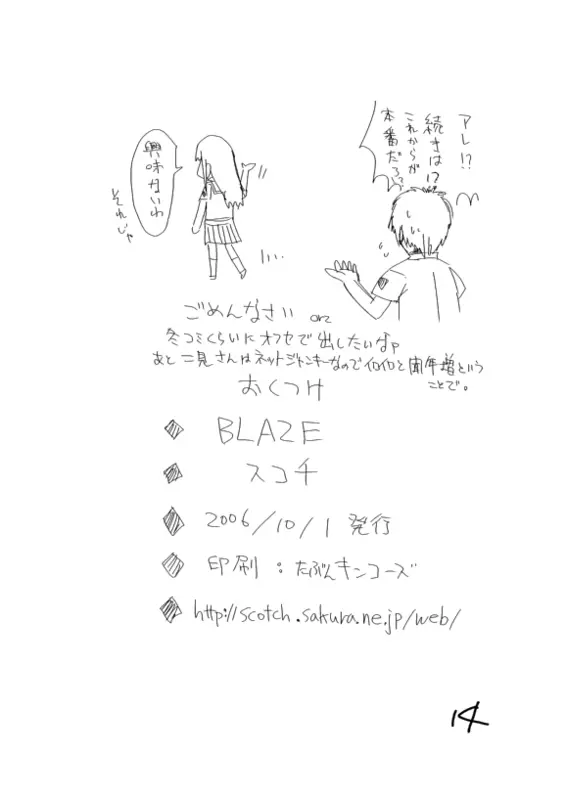 アレ!?
続きは!?
これからが
本番だろ
興味ないわ
それじゃ
ごめんなさい orz
冬コミくらいにオフセで出したいなア
あと二見さんはネットジャンキーなのでイロイロと 年増という
ことで。
おくつけ
BLAZE
スコチ
2006/10/1 発行
印刷:たぶんキンコーズ
http://scotch.sakura.ne.jp/web/
14